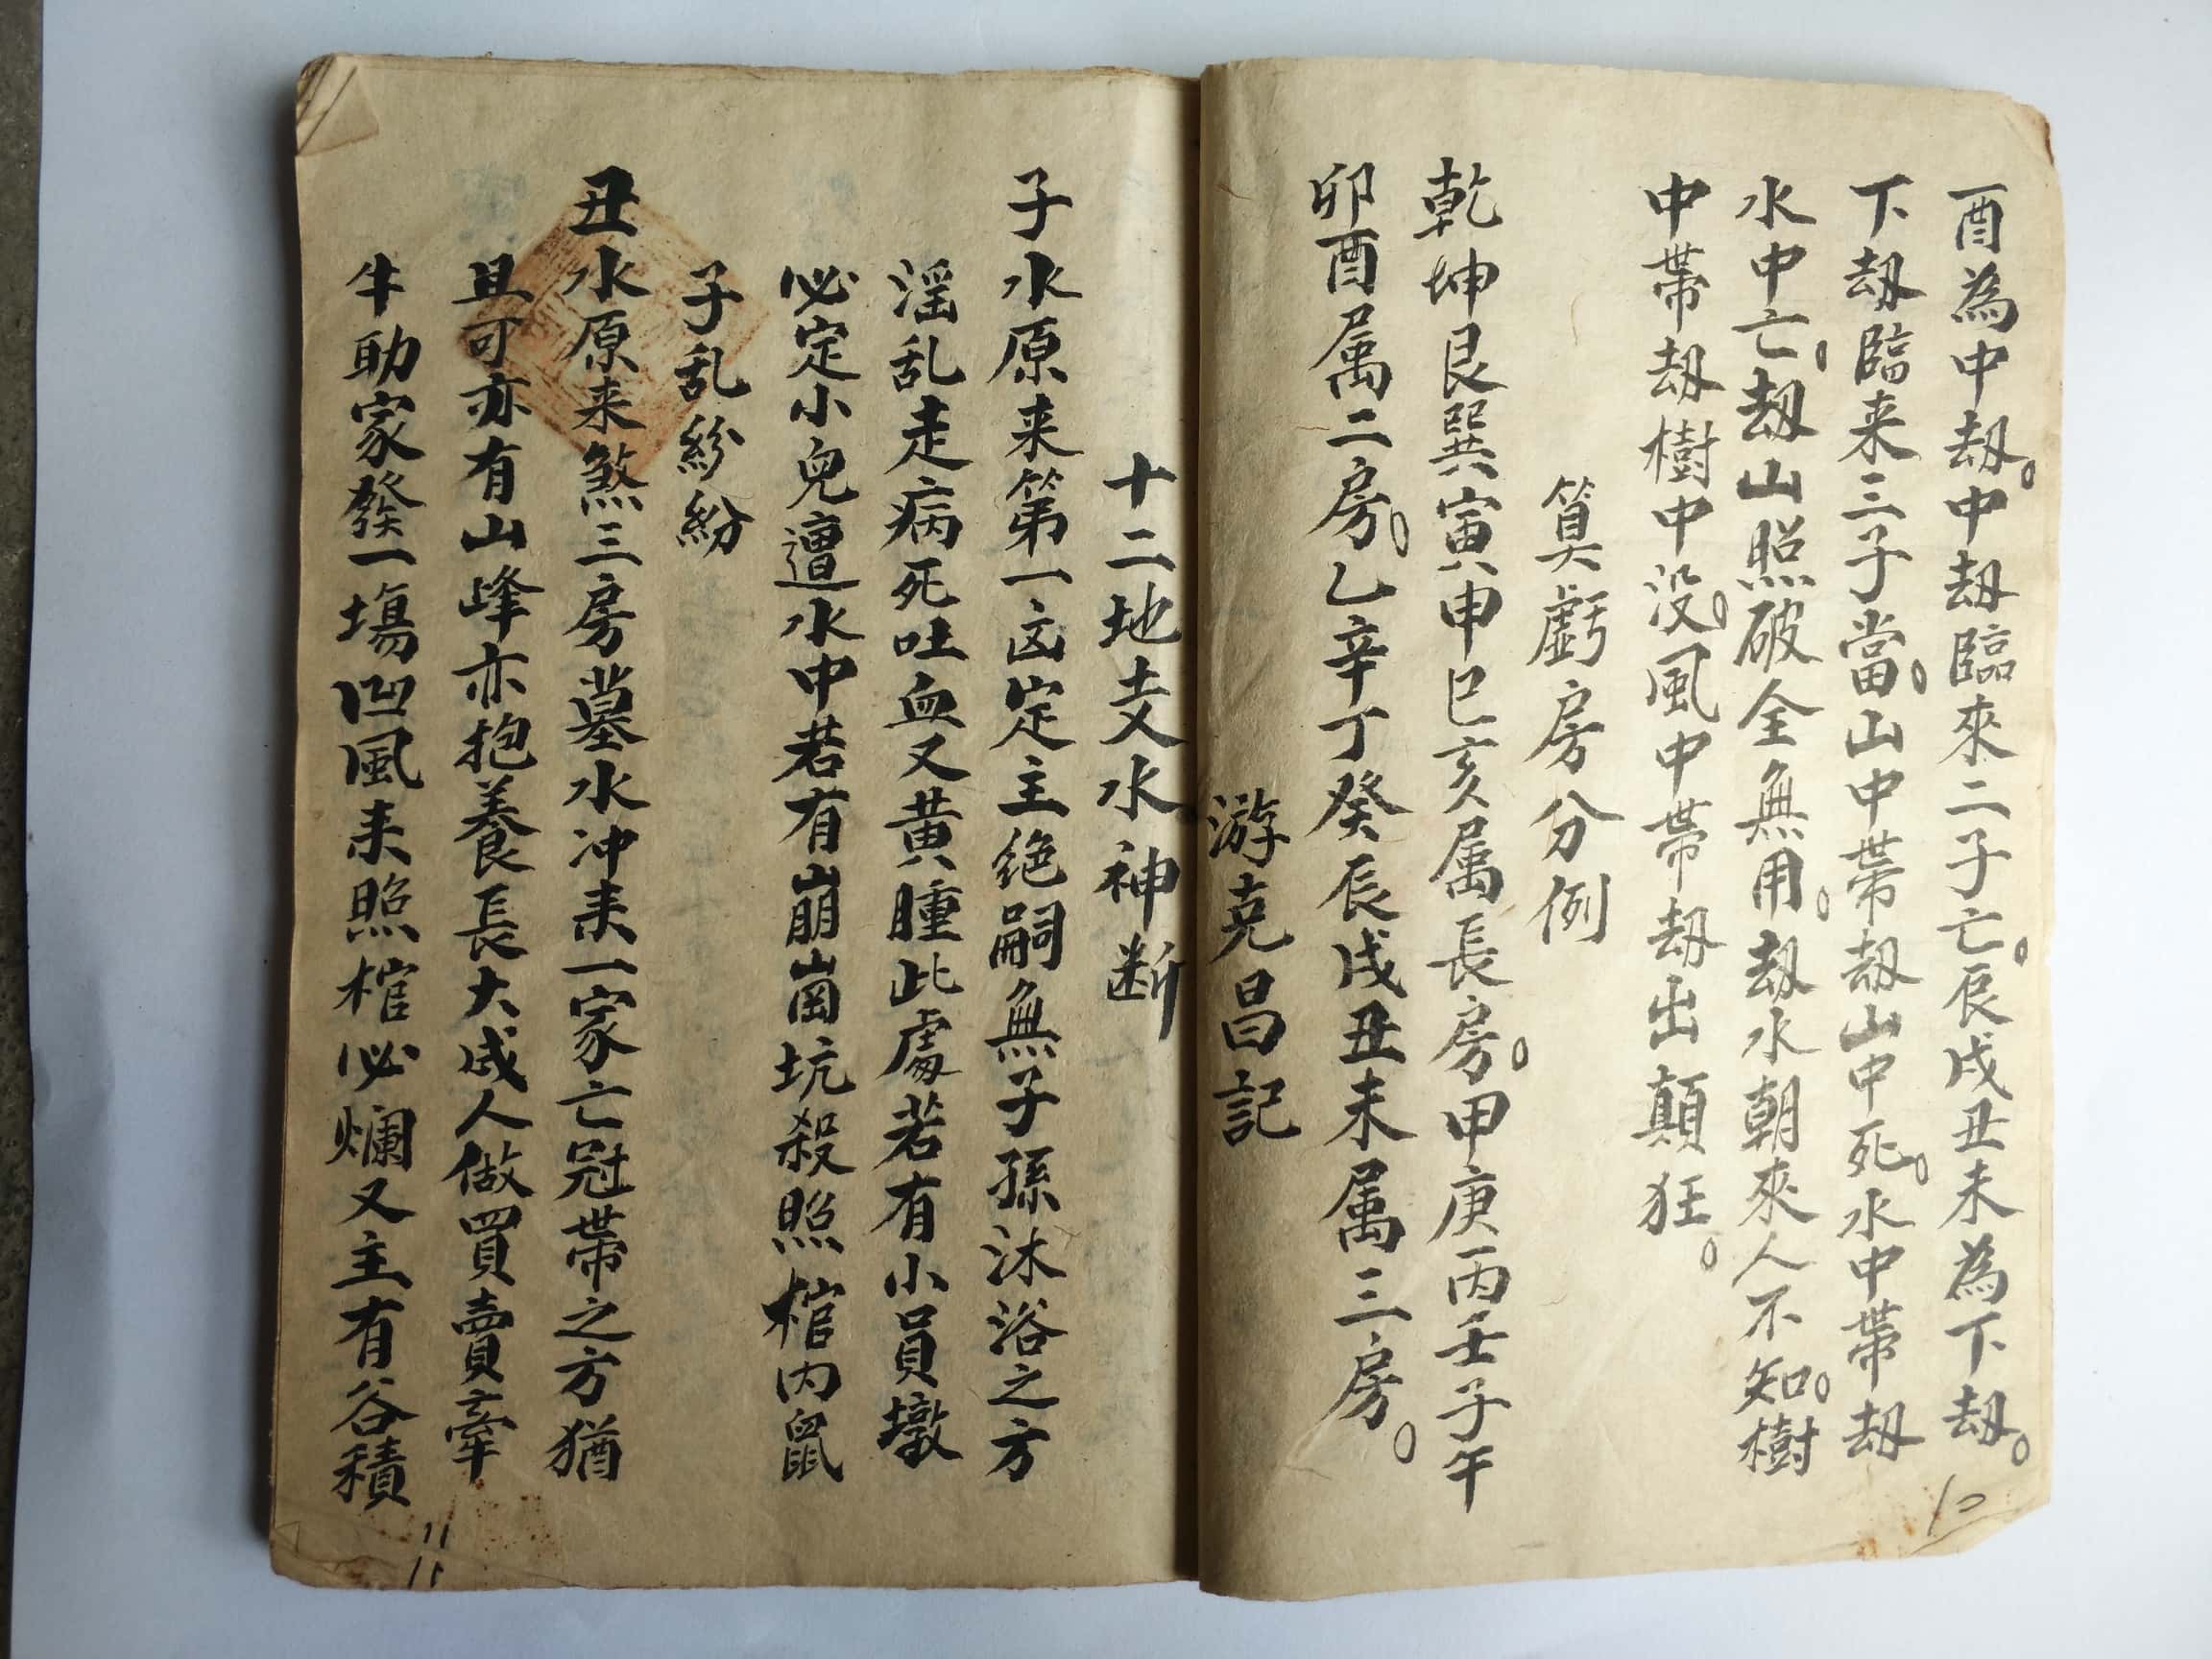 酉為中刼。中刼臨來二子亡。辰戌丑未為下刼。
下刼臨来三子當。山中帶刼山中死。水中帶刼
水中亡。刼山照破全無用。刼水朝來人不知。樹
中帶刼樹中没。風中帶刼出顛狂。
算虧房分例
乾坤艮巽寅申巳亥属長房。甲庚丙壬子午
卯酉属二房。乙辛丁癸辰戌丑未属三房。
游克昌記
十二地支水神断
子水原来第一凶定主绝嗣無子孫沐浴之方
淫乱走病死吐血又黄腫此處若有小員墩
必定小兒遭水中若有崩崗坑殺照棺内鼠
子乱紛紛
丑水原来煞三房墓水冲来一家亡冠帶之方猶
且可亦有山峰亦抱養長大成人做買賣牽
牛助家發一塲凹風来照棺必爛又主有谷積